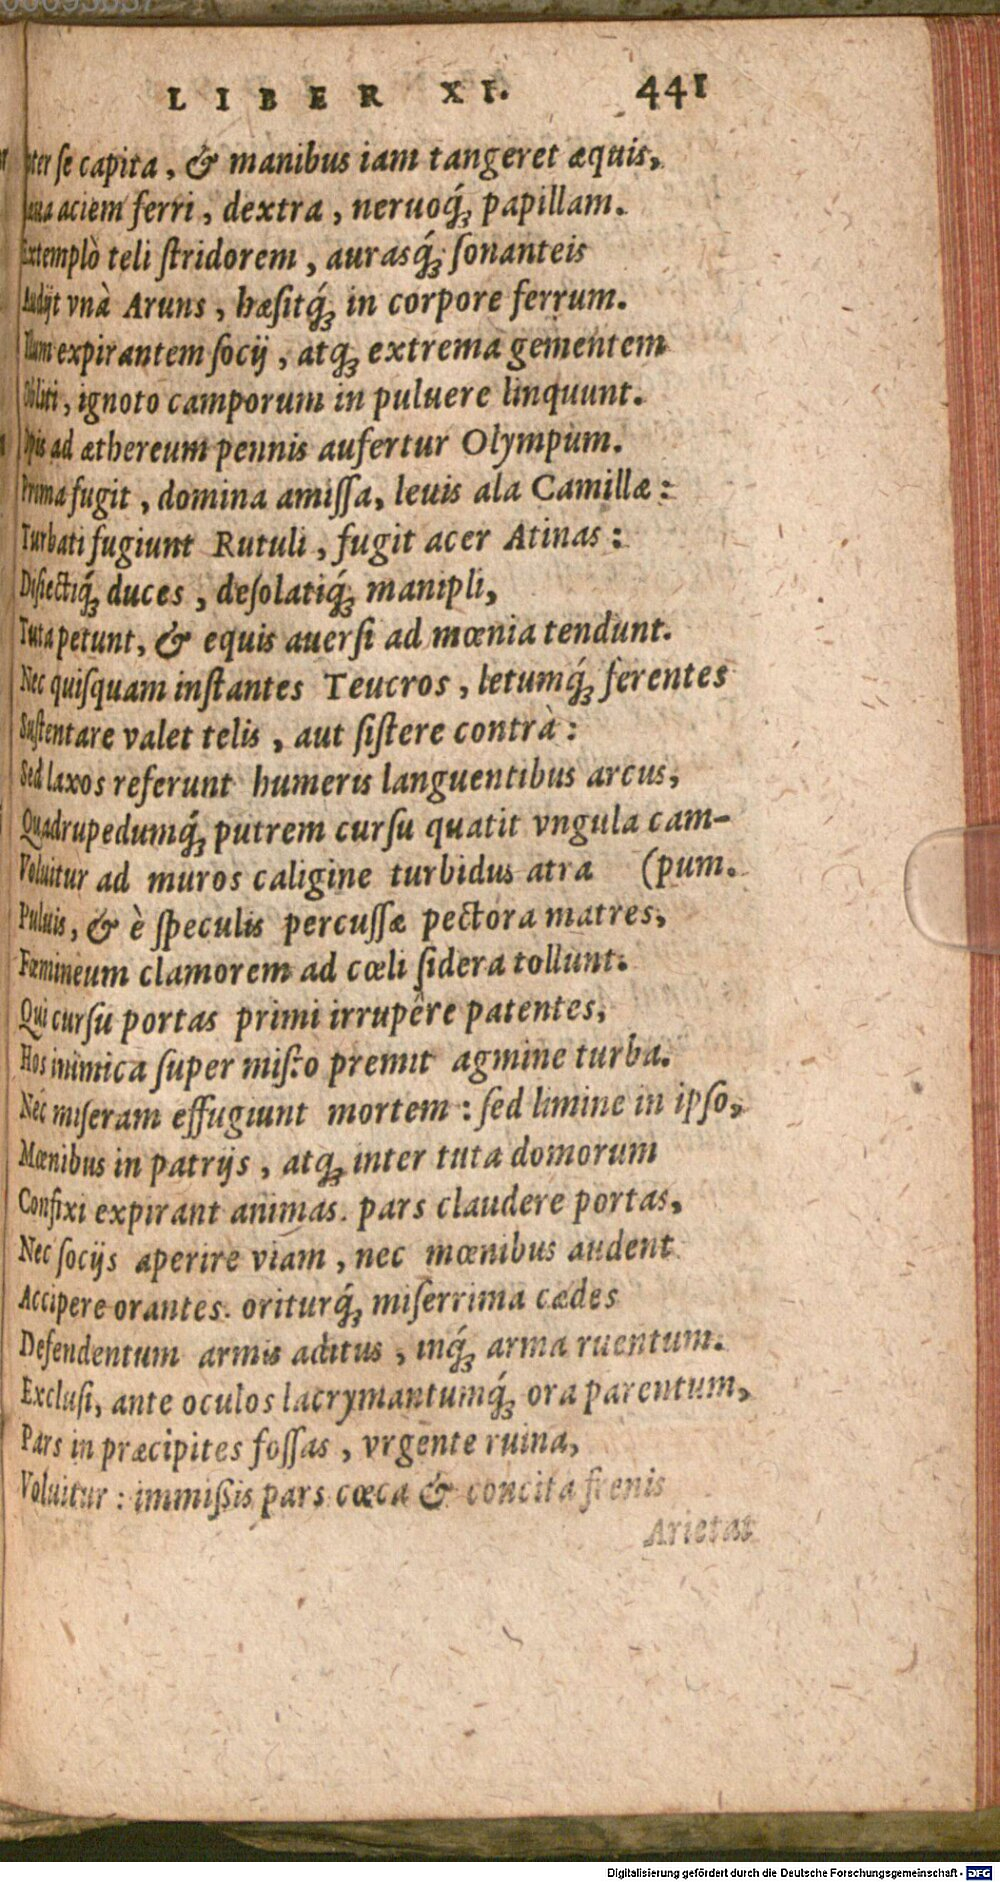 LIBER XI. 441
Inter se capita, & manibus iam tangeret æquis,
Læua aciem ferri, dextra, neruoq́; papillam.
Extemplò teli stridorem, aurasq́; sonanteis
Audijt vnà Aruns, hæsitq́; in corpore ferrum.
Illum expirantem socij, atq; extrema gementem
Obliti, ignoto camporum in puluere linquunt.
Opis ad æthereum pennis aufertur Olympum.
Prima fugit, domina amissa, leuis ala Camillæ:
Turbati fugiunt Rutuli, fugit acer Atinas:
Disiectiq́; duces, desolatiq́; manipli,
Tuta petunt, & equis auersi ad mœnia tendunt.
Nec quisquam instantes Teucros, letumq́; ferentes
Sustentare valet telis, aut sistere contrà:
Sed laxos referunt humeris languentibus arcus,
Quadrupedumq́; putrem cursu quatit vngula cam-
Voluitur ad muros caligine turbidus atra (pum.
Puluis, & è speculis percussæ pectora matres,
Fœmineum clamorem ad cœli sidera tollunt.
Qui cursu portas primi irrupêre patentes,
Hos inimica super misto premit agmine turba.
Nec miseram effugiunt mortem: sed limine in ipso,
Mœnibus in patrijs, atq; inter tuta domorum
Confixi expirant animas. pars claudere portas,
Nec socijs aperire viam, nec mœnibus audent
Accipere orantes. oriturq́; miserrima cædes
Defendentum armis aditus, inq́; arma ruentum.
Exclusi, ante oculos lacrymantumq́; ora parentum,
Pars in præcipites fossas, vrgente ruina,
Voluitur: immissis pars cœca & concita frenis
Arietat
Digitalisierung gefördert durch die Deutsche Forschungsgemeinschaft - DFG